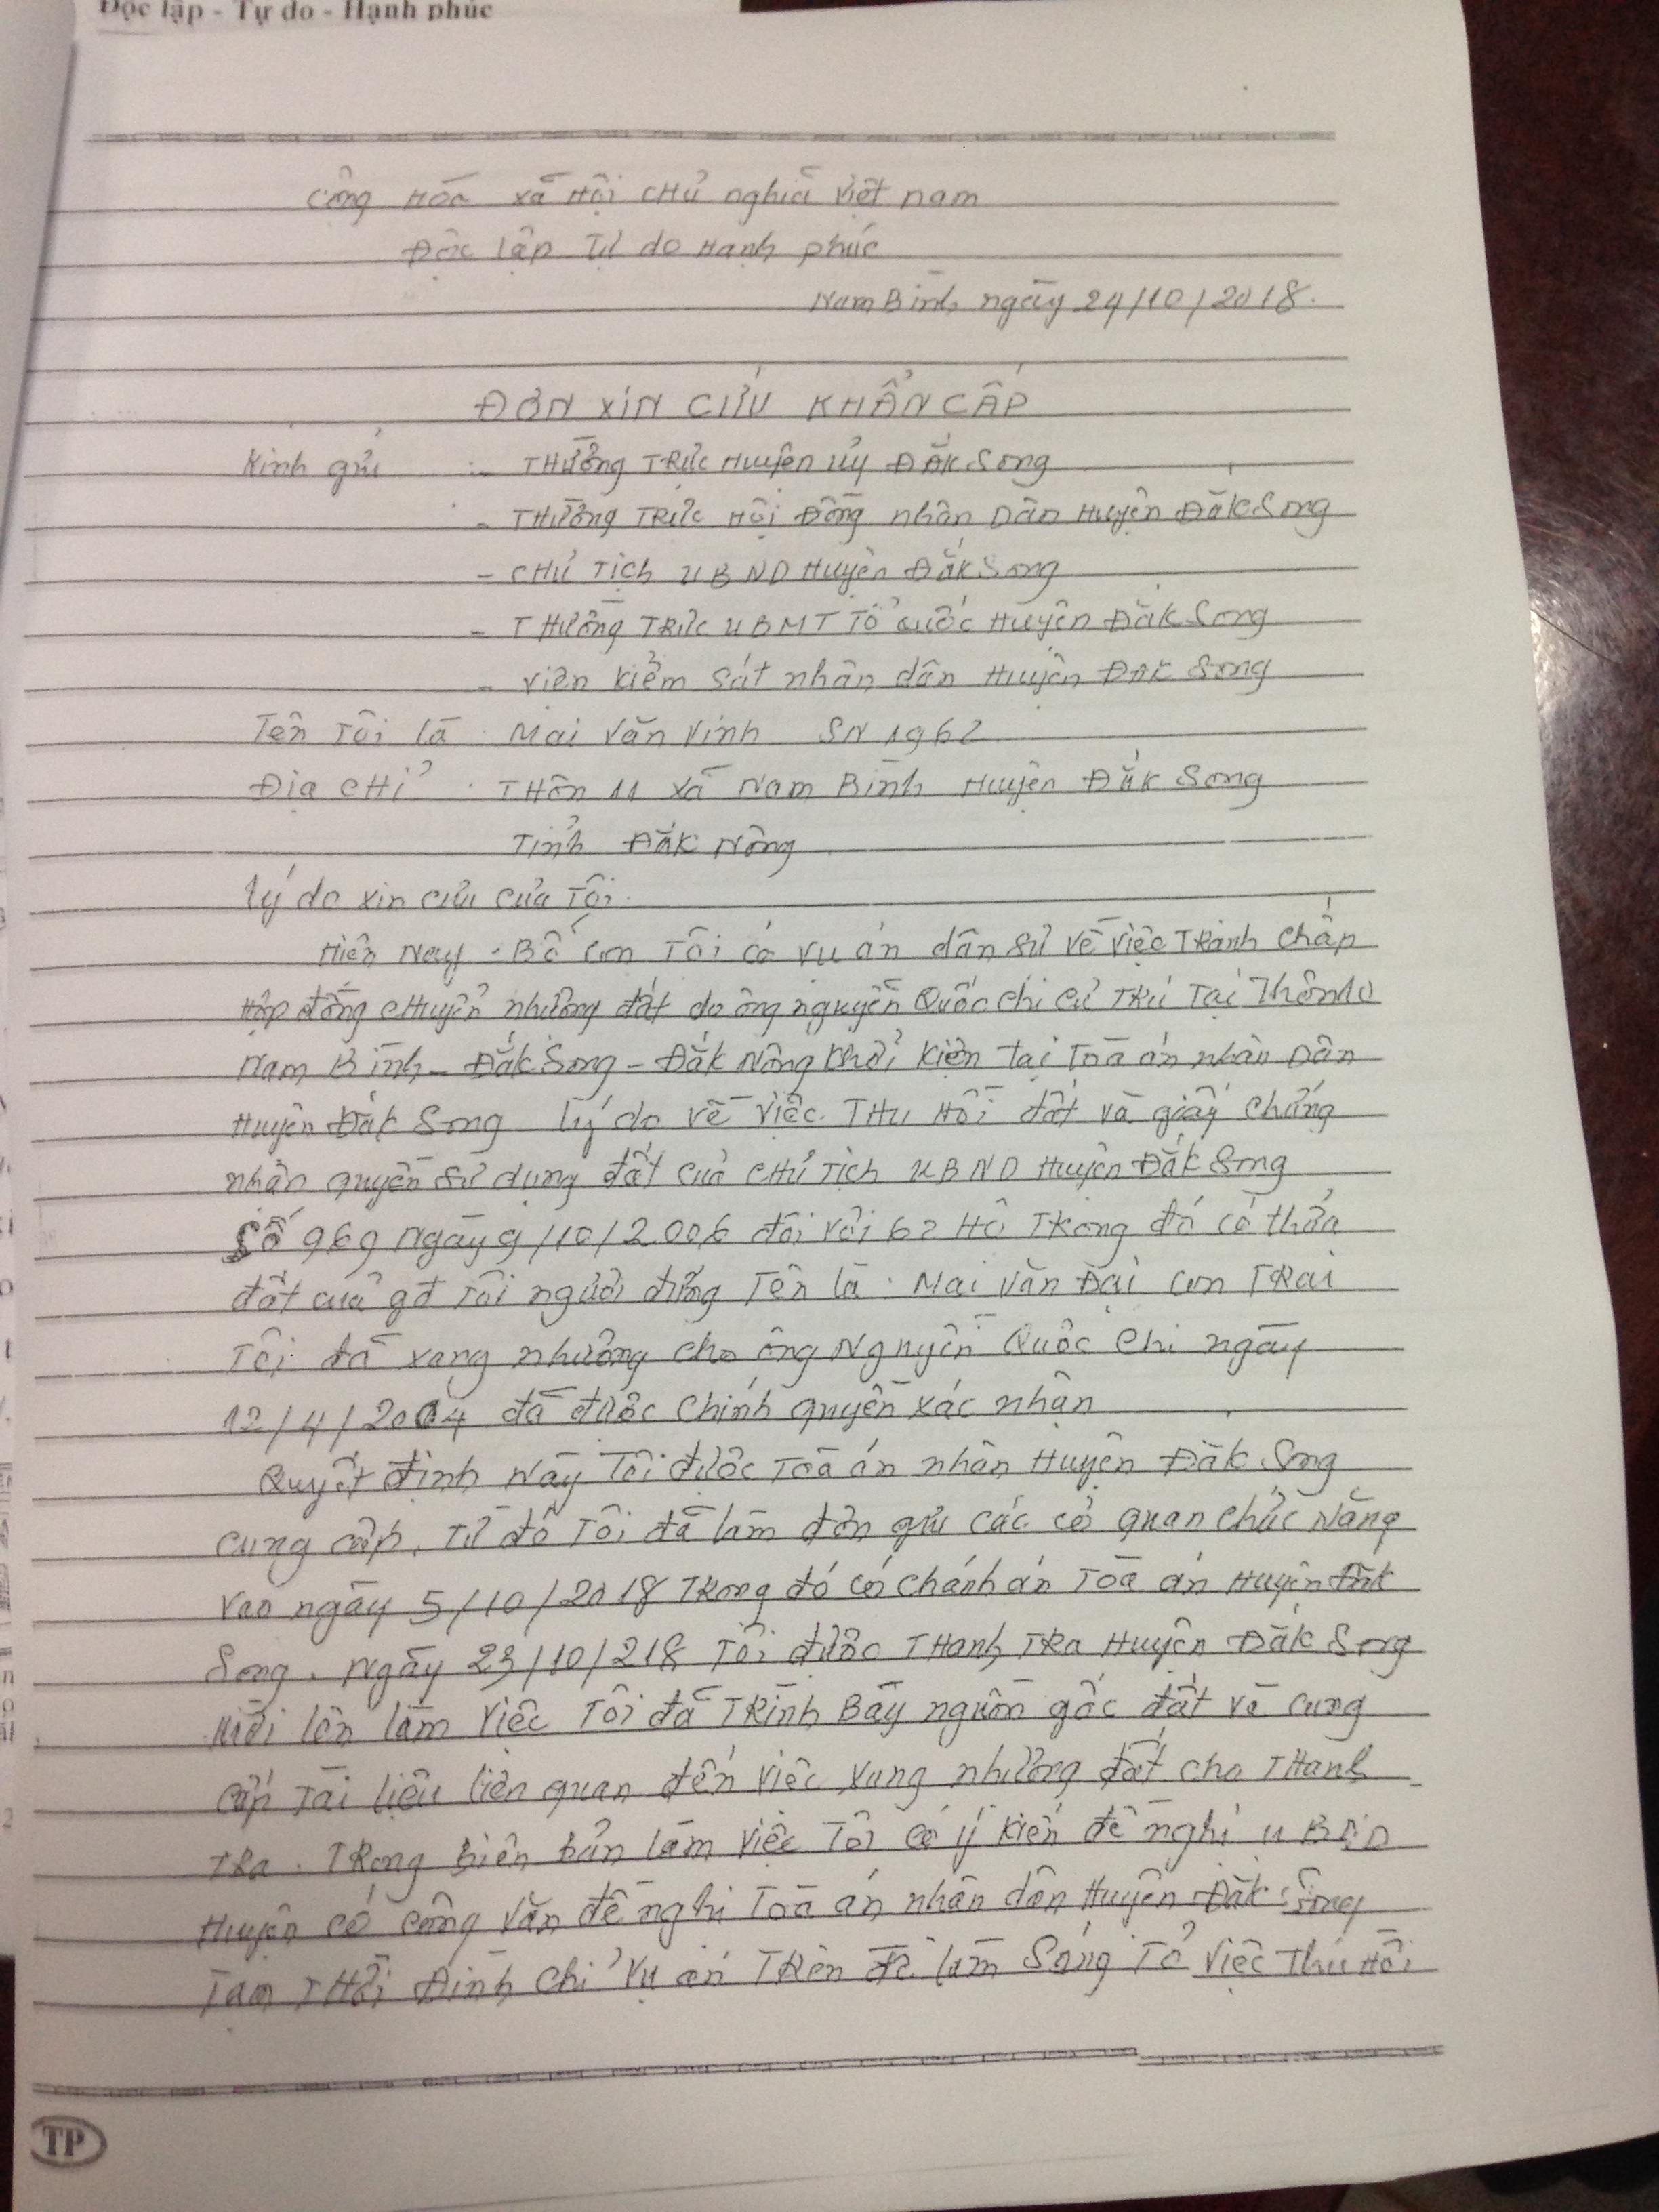 Độc lập - Tự do - Hạnh phúc
Công Hóa xã Hội chủ nghĩa việt nam
Độc lập Tự do Hạnh phúc
Nam Bình ngày 24/10/2018.
ĐƠN XIN CỨU KHẨN CẤP
Kính gửi :- THường TRực Huyện ủy ĐẮK Song
- THường TRực Hội Đồng nhân Dân Huyện ĐắkSong
- CHủ Tịch UBND Huyện Đắk Song
- THường TRực UBMT Tổ quốc Huyện Đắk Song
- Viện Kiểm Sát nhân dân Huyện ĐĂK Song
Tên Tôi là : Mai Văn Vinh SN 1962
Địa CHỉ : THôn 11 xã Nam Bình Huyện Đắk Song
Tỉnh Đắk Nông
Lý do xin cứu của Tôi.
Hiện Nay - Bố con Tôi có vụ án dân sự về việc TRanh chấp
Hợp đồng CHuyển nhường đất do ông nguyễn Quốc Chi cư TRú Tại Thôn10
Nam Bình - Đắk Song - Đắk Nông khởi kiện tại Toà án nhân Dân
Huyện Đắk Song lý do về việc THu Hồi đất và giấy chứng
nhận quyền sử dụng đất của CHủ Tịch UBND Huyện Đắk Song
Số 969 Ngày 9/10/2006 đối với 62 Hộ TRong đó có thửa
đất của gđ Tôi người đứng Tên là : Mai Văn Đại con TRai
Tôi đã xang nhường cho ông Nguyễn Quốc Chi ngày
12/4/2004 đã được chính quyền xác nhận
Quyết định Này Tôi được Toà án nhân Huyện Đắk Song
cung cấp, Từ đó Tôi đã làm đơn gửi các cơ quan chức Năng
vào ngày 5/10/2018 TRong đó có chánh án Toà án Huyện Đắk
Song. Ngày 23/10/218 Tôi được THanh TRa Huyện Đắk Song
mời lên làm việc Tôi đã TRình Bày nguồn gốc đất và cung
cấp Tài liệu liên quan đến việc xang nhường đất cho THanh
TRa. TRong biên bản làm việc Tôi có ý kiến đề nghị UBND
Huyện có công văn đề nghị Toà án nhân dân Huyện Đắk Song
Tạm THời Đình chỉ vụ án TRên để làm Sáng Tỏ việc Thu Hồi
TP